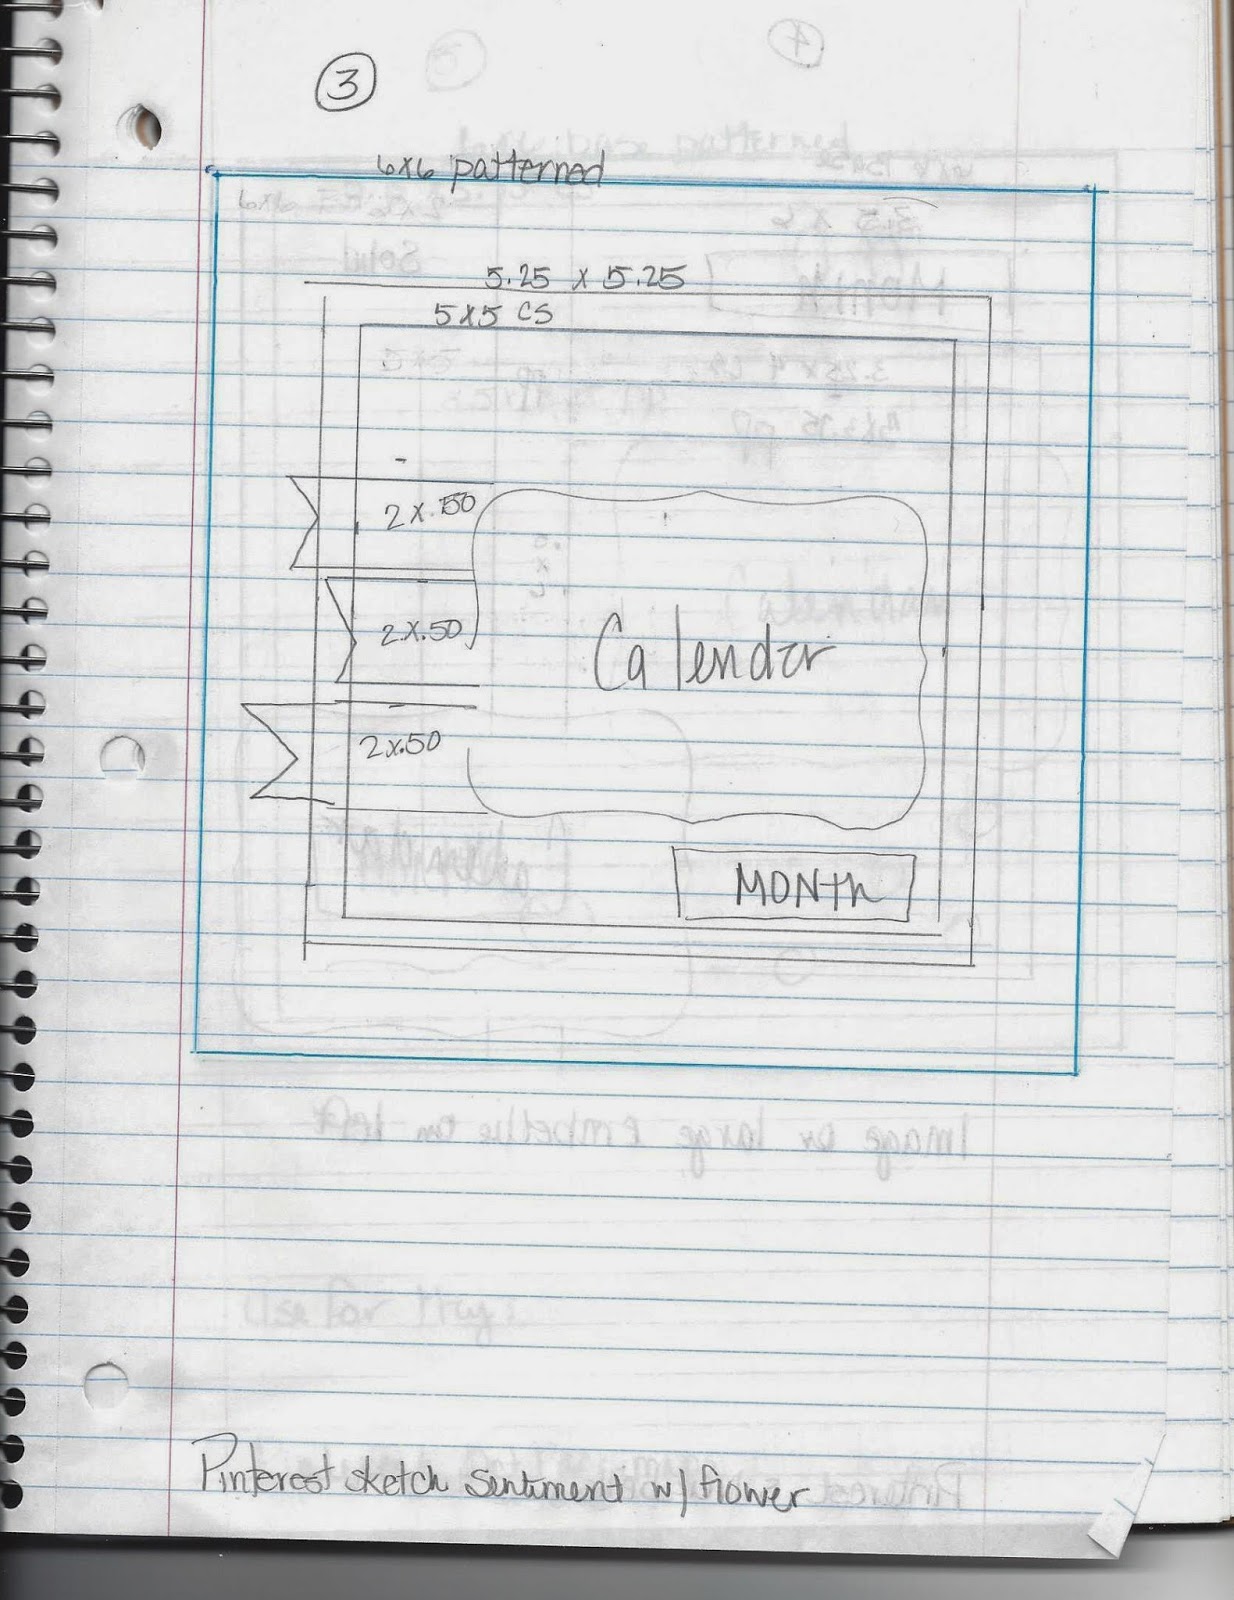 3
6x6 patterned
5.25 x 5.25
5x5 CS
2x.50
2x.50
Calendar
2x.50
MONth
Pinterest sketch sentiment w/ flower